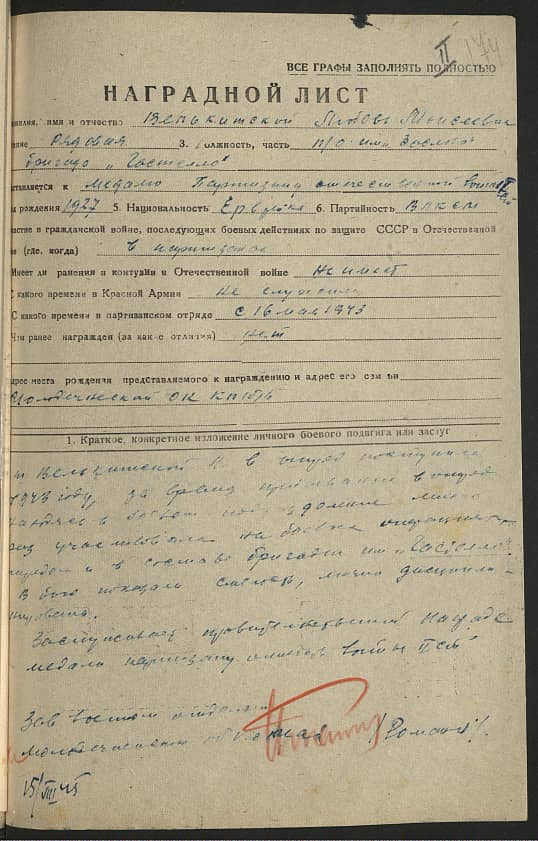 II 174
ВСЕ ГРАФЫ ЗАПОЛНЯТЬ ПОЛНОСТЬЮ
НАГРАДНОЙ ЛИСТ
амилия, имя и отчество Велькитской Любовь Моисеевне
ание рядовая 3. Должность, часть п/о им. Заслон
бригада „Гастелло"
ставляется к медали Партизану отечественной войны II ст
рождения 1927 5. Национальность Еврейка 6. Партийность ВЛКСМ
астие в гражданской войне, последующих боевых действиях по защите СССР в Отечественной
не (где, когда) в партизанах
Имеет ли ранения и контузии в Отечественной войне Не имеет
С какого времени в Красной Армии не служила
С какого времени в партизанском отряде с 16 мая 1943
Чем ранее награжден (за какие отличия) нет
дрес места рождения представляемого к награждению и адрес его семьи
Молодечненский ОК КП(б)Б
1. Краткое, конкретное изложение личного боевого подвига или заслуг
Велькитской Л. в отряд поступила
1943 году, за время пребывания в отряде
в боевом подразделение лично
раз участвовала на боевых операциях
отрядом и в составе бригады им „Гастелло".
В бою показала смелость,
Заслуживает правительственной награде
медали партизану отечеств. войны II ст"
Зав.
Молодечненского /Романов/.
15/VIII 45